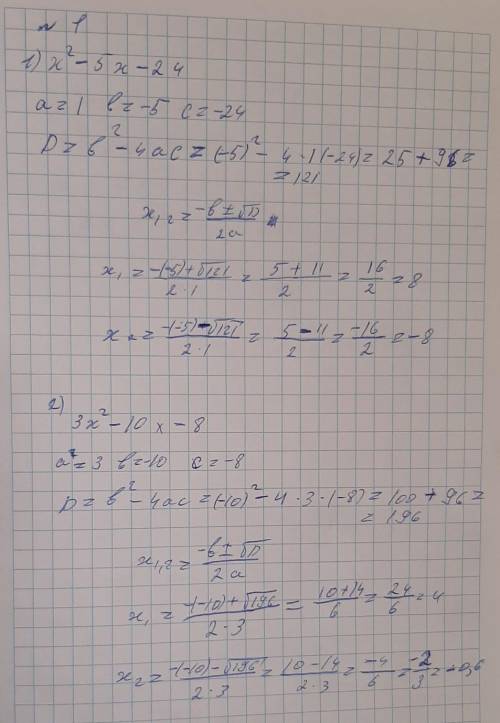 № 1
1) x² - 5x - 24
a = 1 b = -5 c = -24
D = b² - 4ac = (-5)² - 4 · 1(-24) = 25 + 96 =
= 121
x₁,₂ = (-b ± √D) / 2a
x₁ = (-(-5) + √121) / (2 · 1) = (5 + 11) / 2 = 16/2 = 8
x₂ = (-(-5) - √121) / (2 · 1) = (5 - 11) / 2 = -16/2 = -8
2)
3x² - 10x - 8
a = 3 b = -10 c = -8
D = b² - 4ac = (-10)² - 4 · 3 · (-8) = 100 + 96 =
= 196
x₁,₂ = (-b ± √D) / 2a
x₁ = (-(-10) + √196) / (2 · 3) = (10 + 14) / 6 = 24/6 = 4
x₂ = (-(-10) - √196) / (2 · 3) = (10 - 14) / (2 · 3) = -4/6 = -2/3 = -0,6